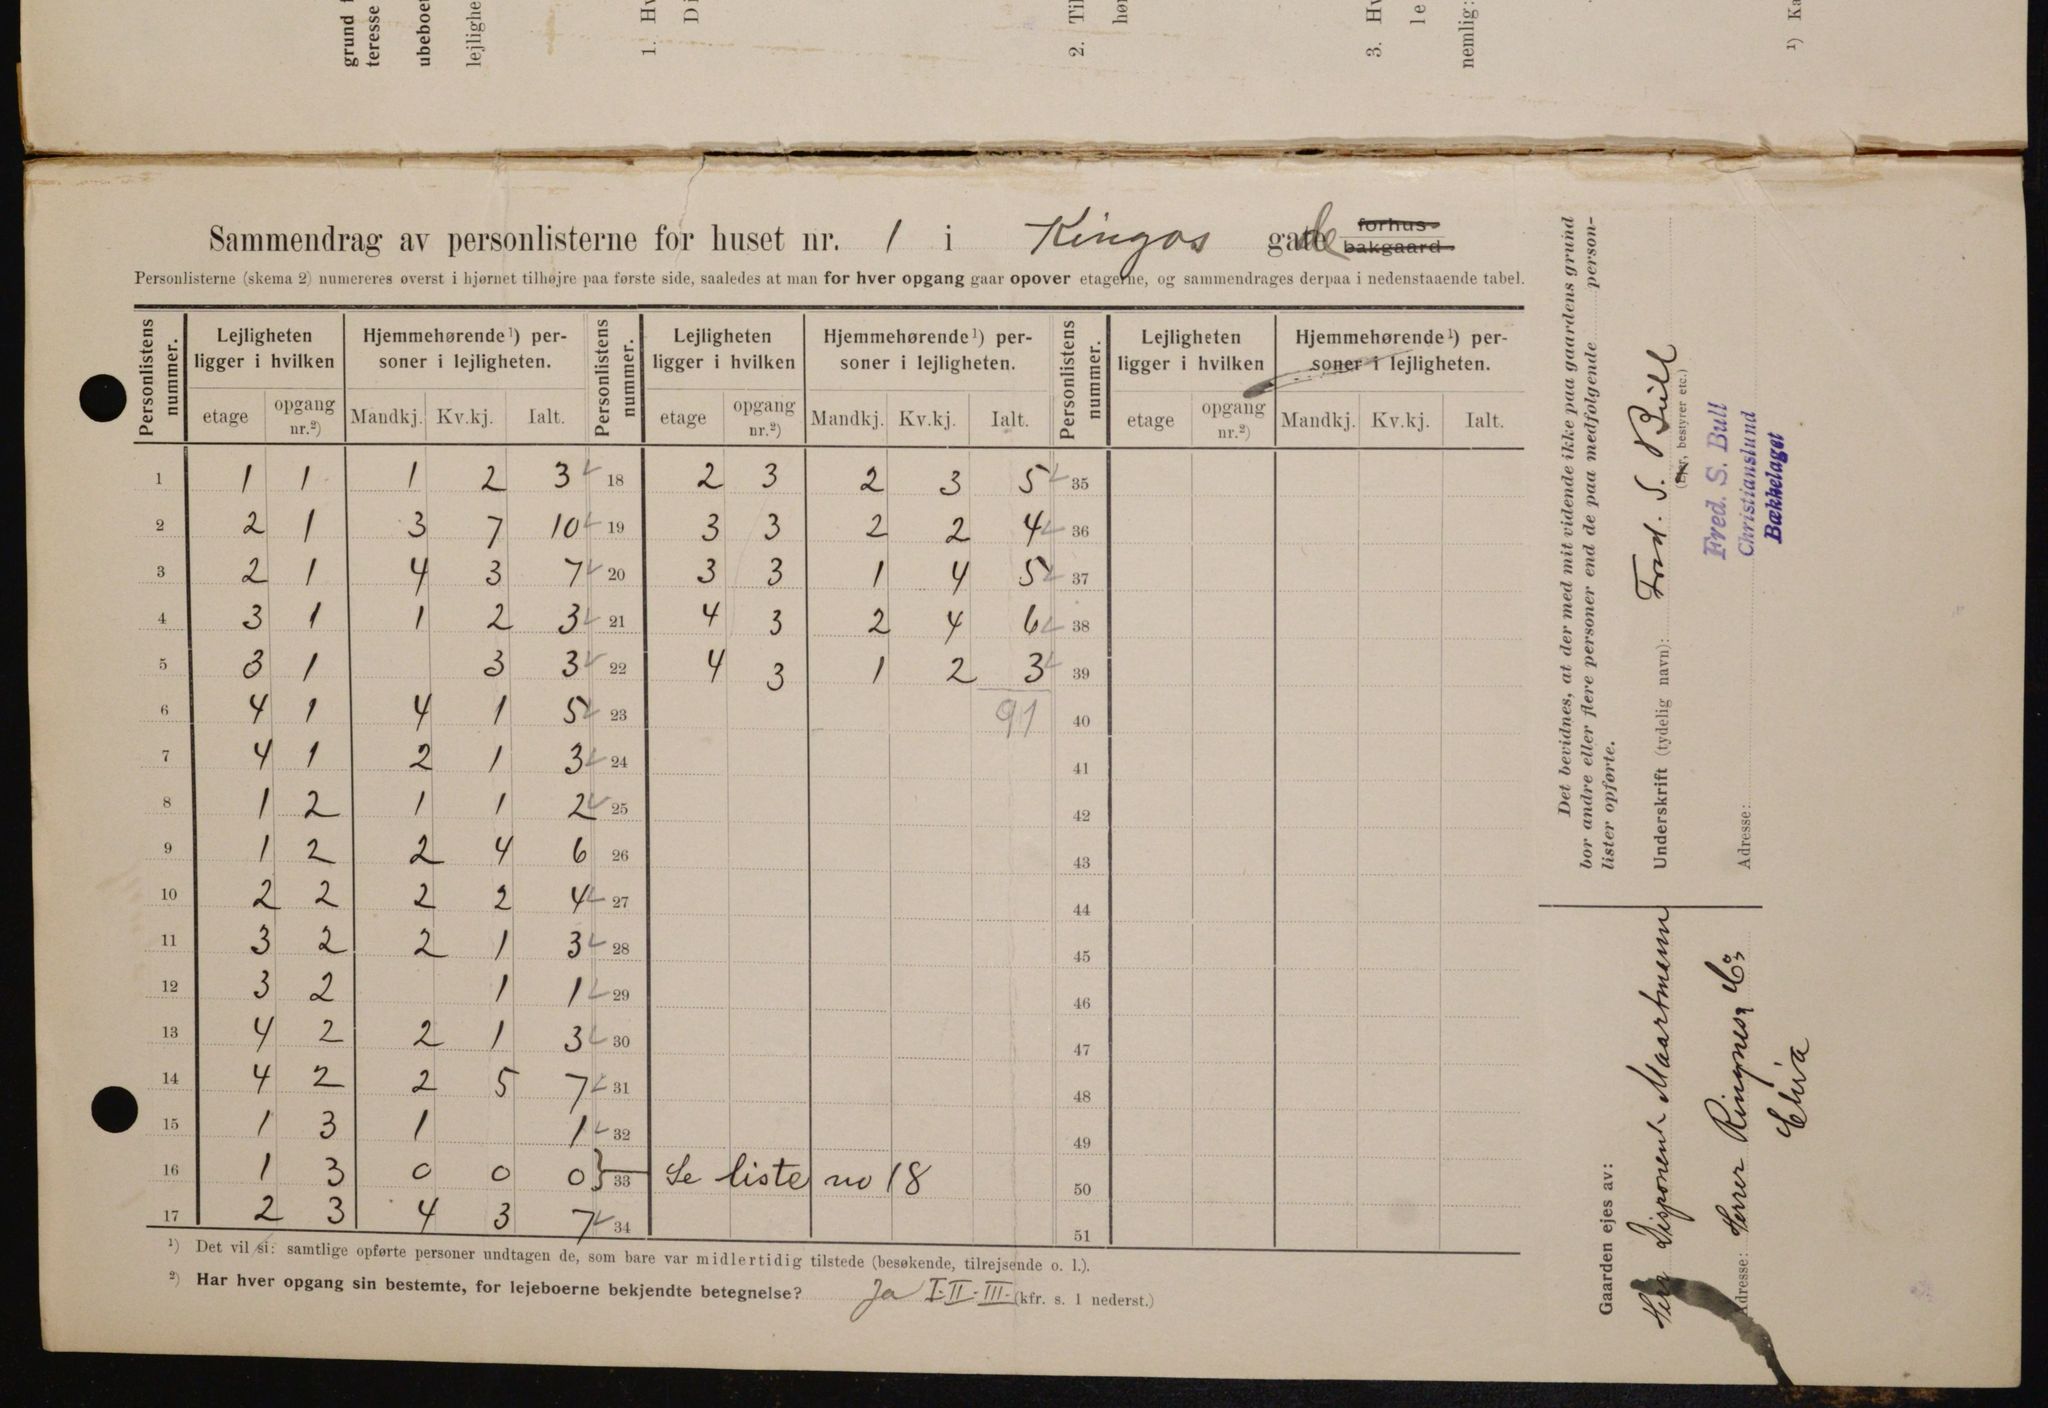 grund f
teresse
ubeboet
lejlighe
1. Hv
D i
2. Til
hør
3. Hv
l e
nemlig:
¹) Ka
Sammendrag av personlisterne for huset nr. 1 i Kingos gade forhus- bakgaard-
Personlisterne (skema 2) numereres øverst i hjørnet tilhøjre paa første side, saaledes at man for hver opgang gaar opover etagerne, og sammendrages derpaa i nedenstaaende tabel.
Personlistens nummer. Lejligheten ligger i hvilken Hjemmehørende¹) personer i lejligheten. Personlistens nummer. Lejligheten ligger i hvilken Hjemmehørende¹) personer i lejligheten. Personlistens nummer. Lejligheten ligger i hvilken Hjemmehørende¹) personer i lejligheten.
etage opgang nr.²) Mandkj. Kv.kj. Ialt. etage opgang nr.²) Mandkj. Kv.kj. Ialt. etage opgang nr.²) Mandkj. Kv.kj. Ialt.
1 1 1 1 2 3 18 2 3 2 3 5 35
2 2 1 3 7 10 19 3 3 2 2 4 36
3 2 1 4 3 7 20 3 3 1 4 5 37
4 3 1 1 2 3 21 4 3 2 4 6 38
5 3 1 3 3 22 4 3 1 2 3 39
6 4 1 4 1 5 23 91 40
7 4 1 2 1 3 24 41
8 1 2 1 1 2 25 42
9 1 2 2 4 6 26 43
10 2 2 2 2 4 27 44
11 3 2 2 1 3 28 45
12 3 2 1 1 29 46
13 4 2 2 1 3 30 47
14 4 2 2 5 7 31 48
15 1 3 1 1 32 49
16 1 3 0 0 0 33 Se liste no 18 50
17 2 3 4 3 7 34 51
¹) Det vil si: samtlige opførte personer undtagen de, som bare var midlertidig tilstede (besøkende, tilrejsende o. l.).
²) Har hver opgang sin bestemte, for lejeboerne bekjendte betegnelse? Ja I. II. III. (kfr. s. 1 nederst.)
Det bevidnes, at der med mit vidende ikke paa gaardens grund
bor andre eller flere personer end de paa medfølgende person-
lister opførte.
Underskrift (tydelig navn): Fred. S. Bull
(Ejer, bestyrer etc.)
Fred. S. Bull
Christianslund
Bækkelaget
Adresse:
Gaarden ejes av:
Herr Disponent Maartmann
Adresse: Herrer Ringnes & Co
Chr'a